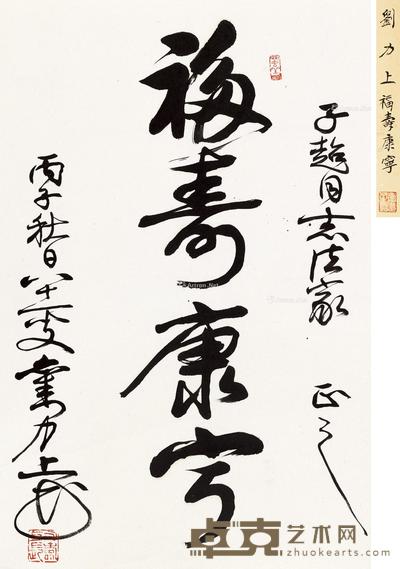 劉力上福壽康寧
子超同志法家
正之
福壽康宁
丙子秋日八十一叟劉力上書
Artron.Net
卓克艺术网
zhuokearts.com